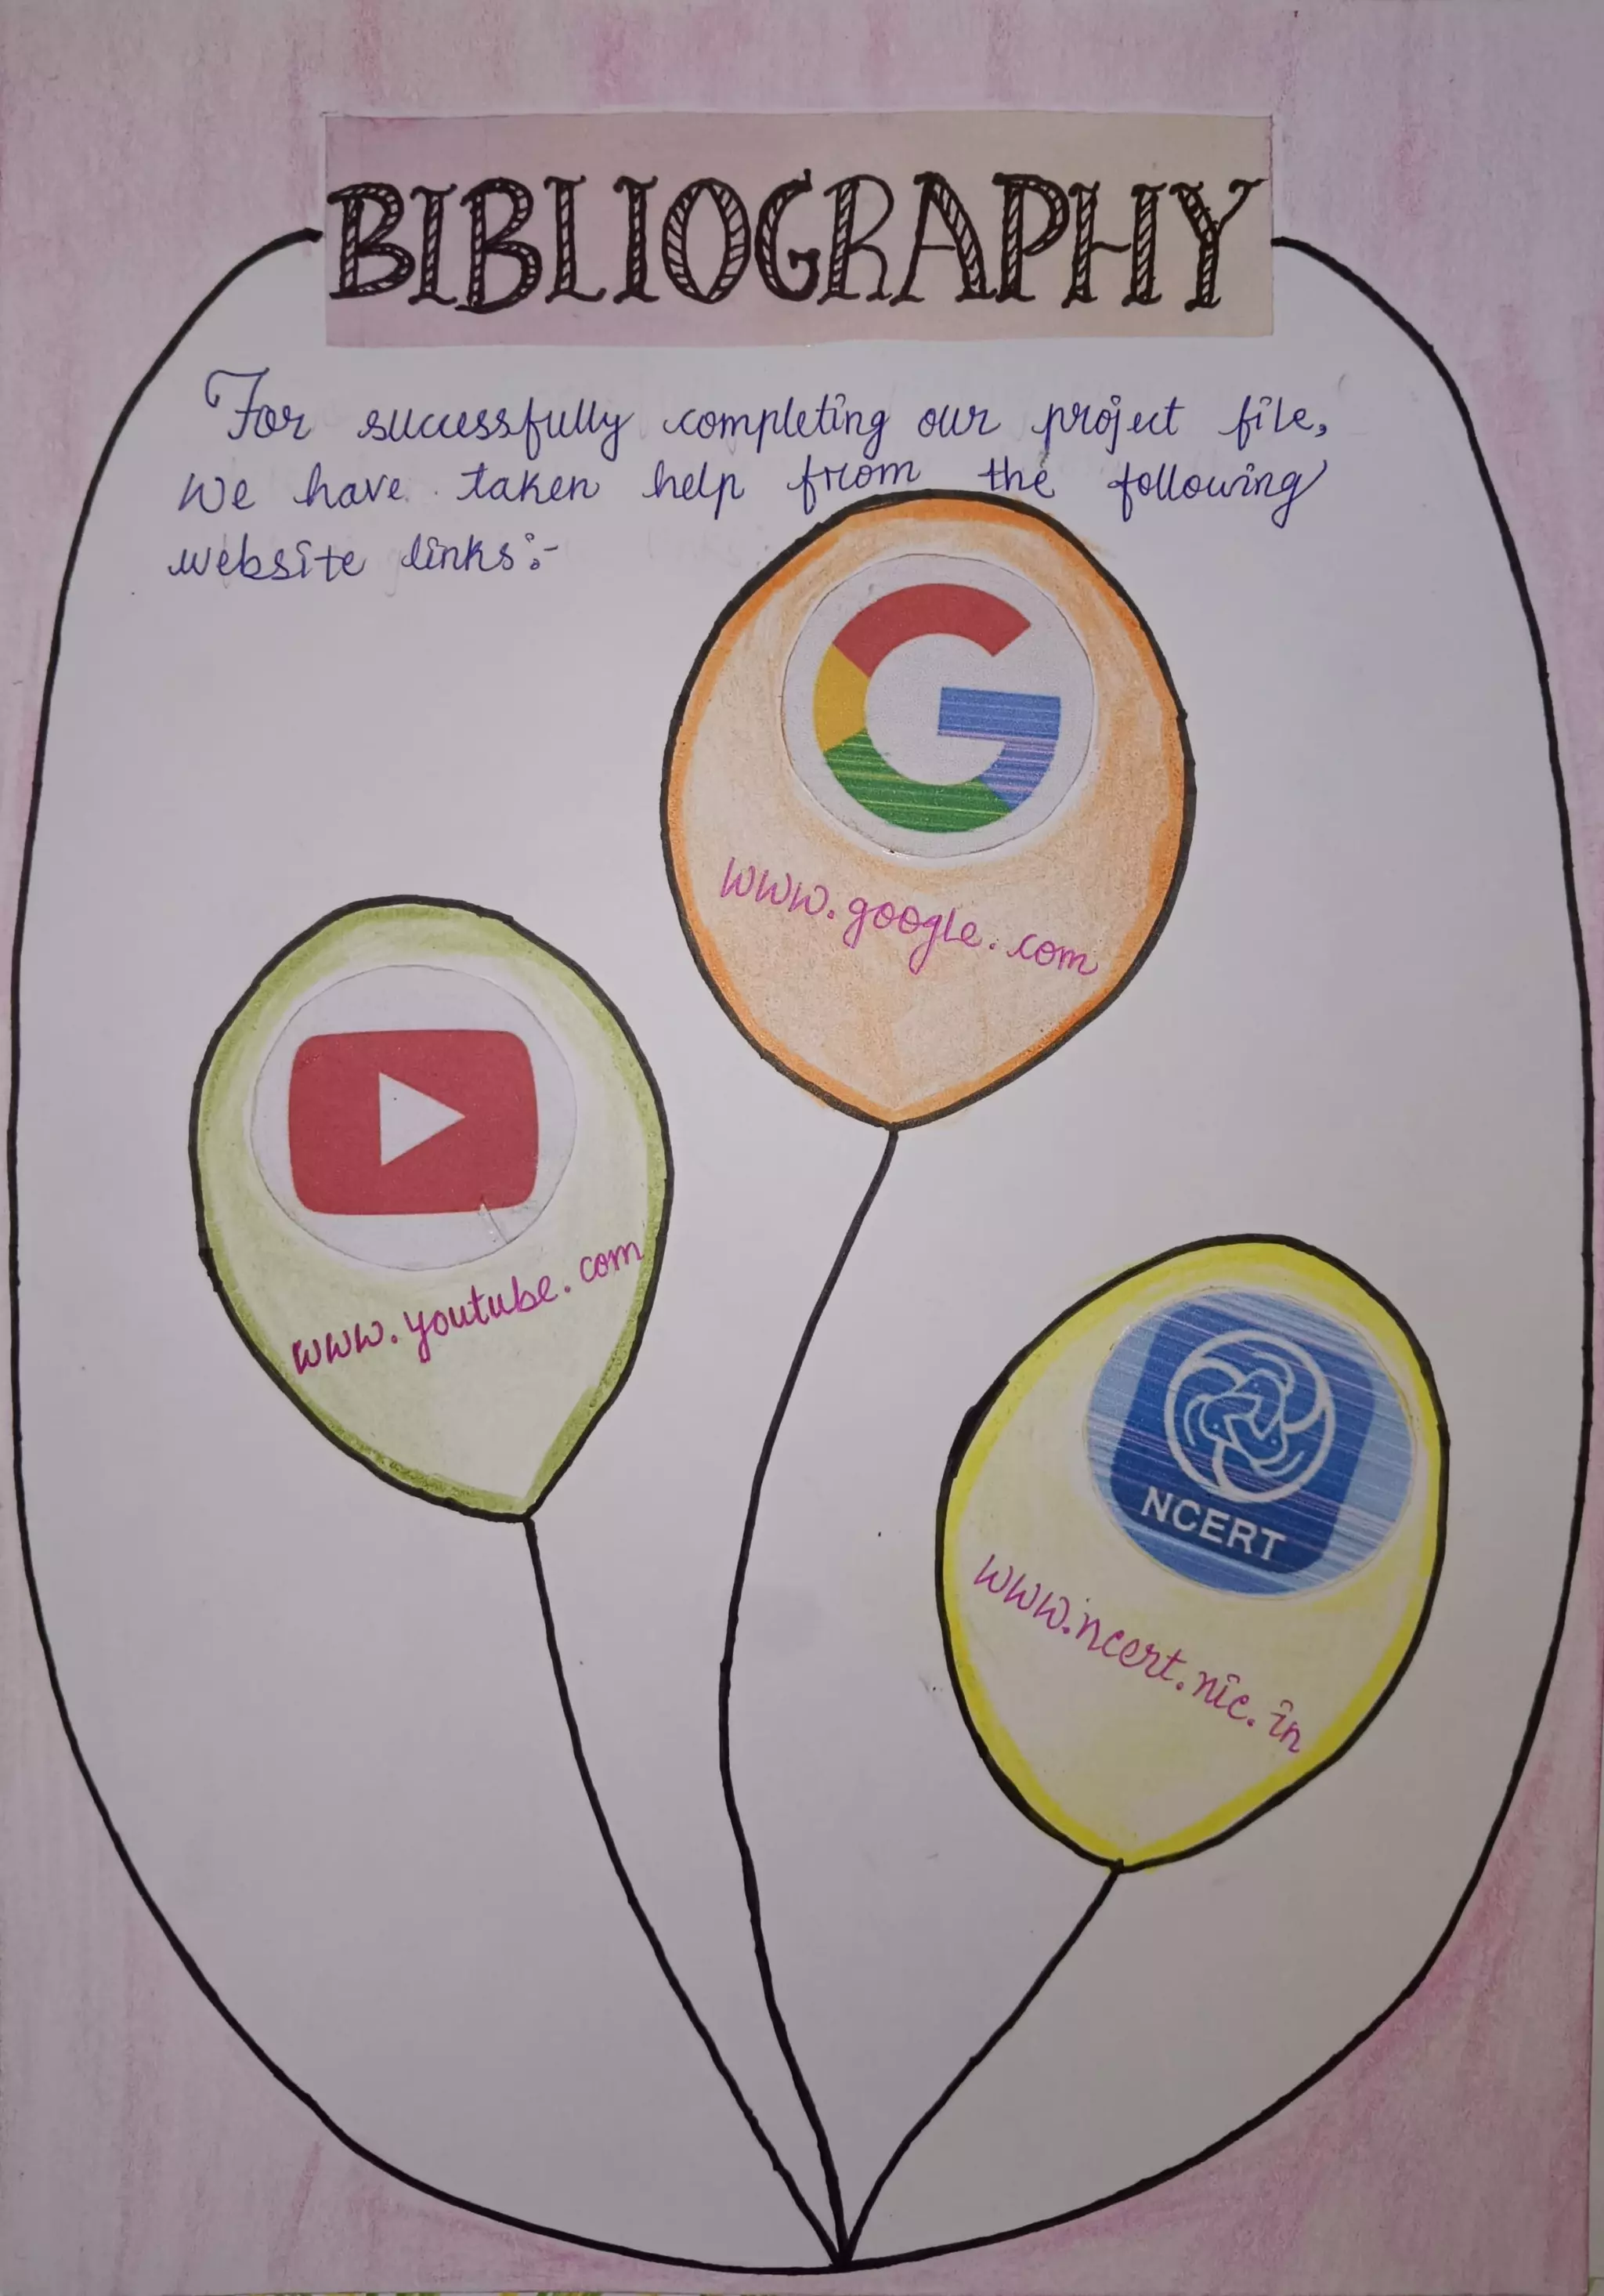 BIBLIOGRAPHY
For successfully completing our project file,
We have taken help from the following
website links:-
www.google.com
www.youtube.com
NCERT
www.ncert.nic.in